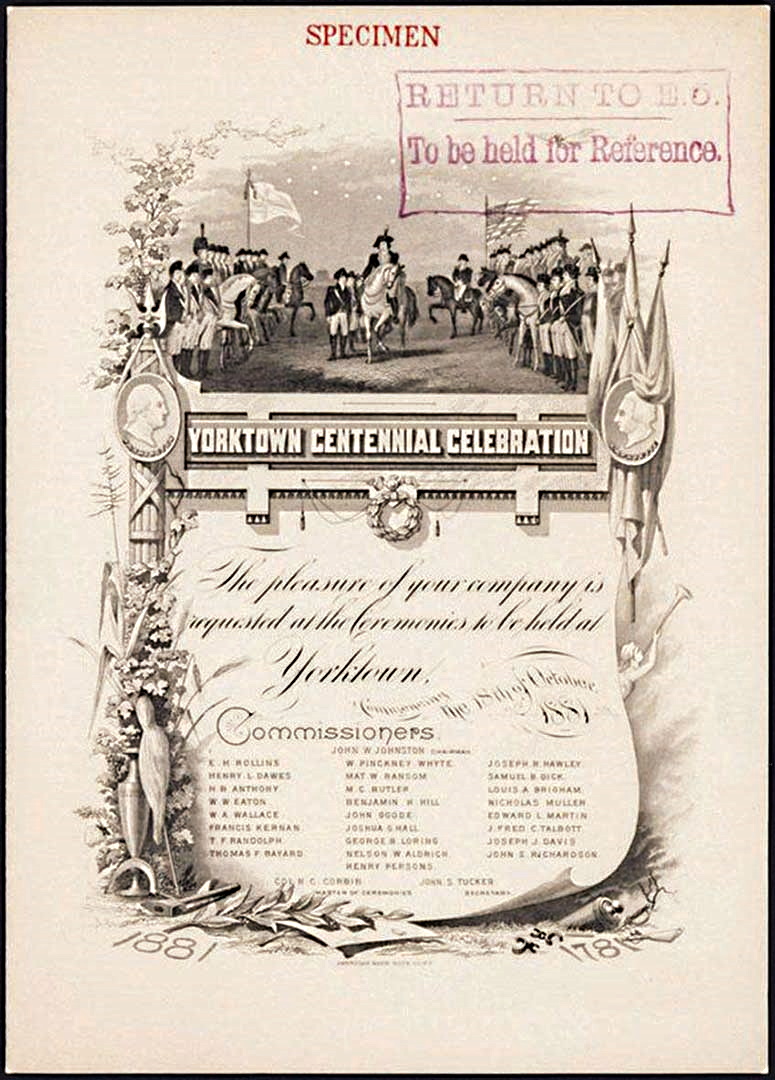 SPECIMEN
RETURN TO E.O.
To be held for Reference.
YORKTOWN CENTENNIAL CELEBRATION
The pleasure of your company is
requested at the Ceremonies to be held at
Yorktown,
Commencing the 18th of October,
1881
Commissioners.
JOHN W. JOHNSTON CHAIRMAN
E. H. ROLLINS W. PINCKNEY WHYTE. JOSEPH R. HAWLEY.
HENRY L. DAWES MAT W. RANSOM SAMUEL B. DICK.
H. B. ANTHONY M. C. BUTLER LOUIS A. BRIGHAM.
W. W. EATON BENJAMIN H. HILL NICHOLAS MULLER
W. A. WALLACE JOHN GOODE EDWARD L. MARTIN
FRANCIS KERNAN JOSHUA G. HALL J. FRED. C. TALBOTT.
T. F. RANDOLPH GEORGE B. LORING JOSEPH J. DAVIS
THOMAS F. BAYARD. NELSON W. ALDRICH JOHN S. RICHARDSON
HENRY PERSONS.
COL. H. C. CORBIN JOHN S. TUCKER
MASTER OF CEREMONIES SECRETARY.
1881 1781
AMERICAN BANK NOTE CO. N.Y.